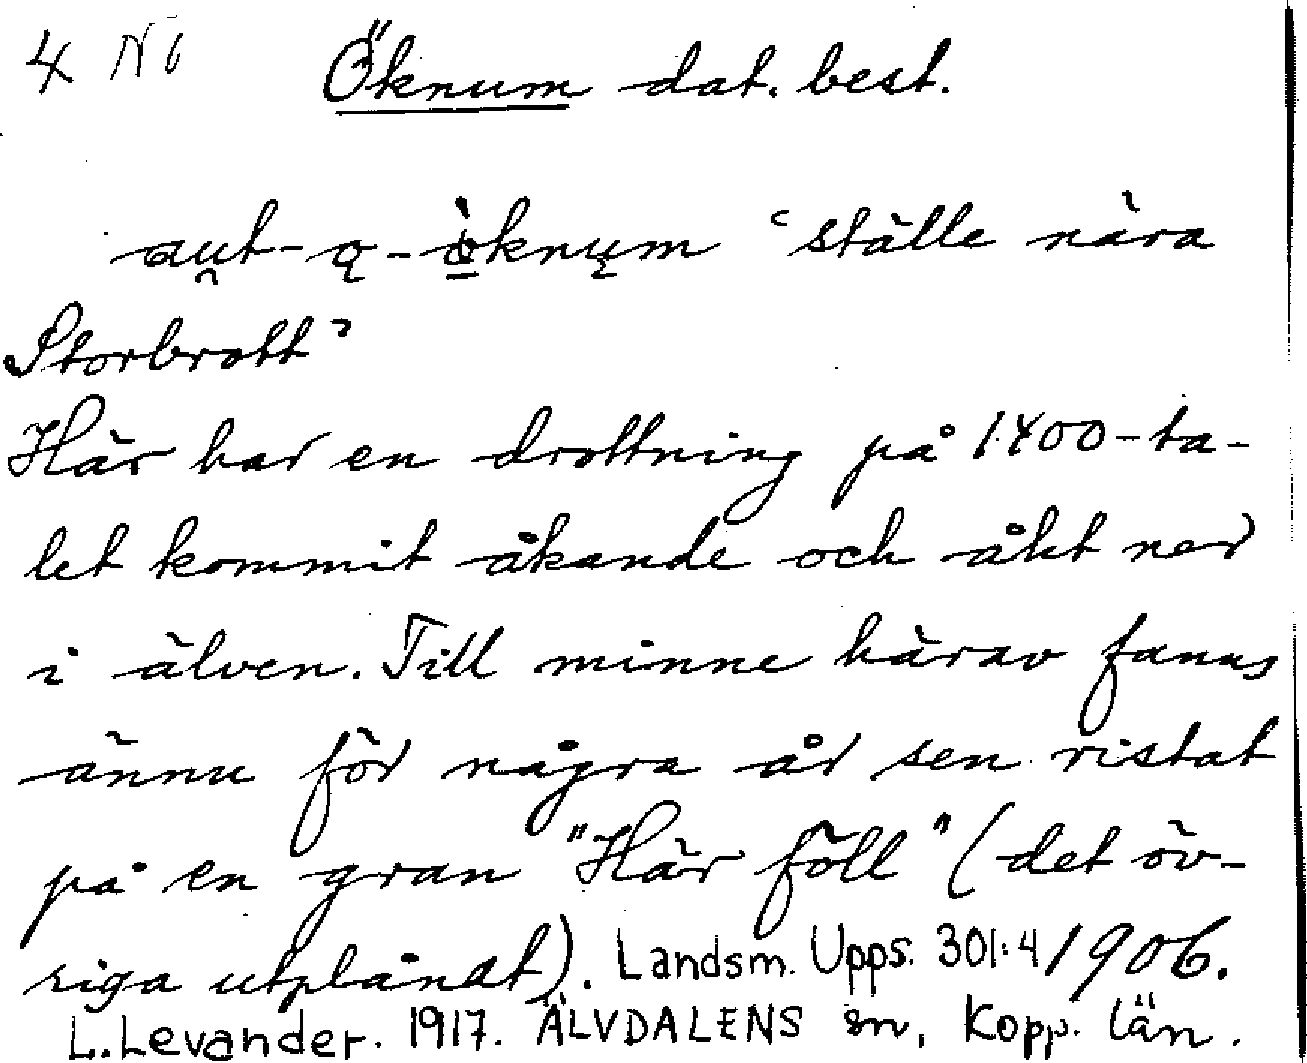 4 No Öknum dat. best.
au̯t-ǫ-ò̠knųm ‘ställe nära
Storbrott’
Här har en drottning på 1400-ta-
let kommit åkande och åkt ner
i älven. Till minne härav fanns
ännu för några år sen ristat
på en gran "Här föll" (det öv-
riga utplånat). Landsm. Upps. 301:4 1906.
L. Levander. 1917. ÄLVDALENS sn, Kopp. län.